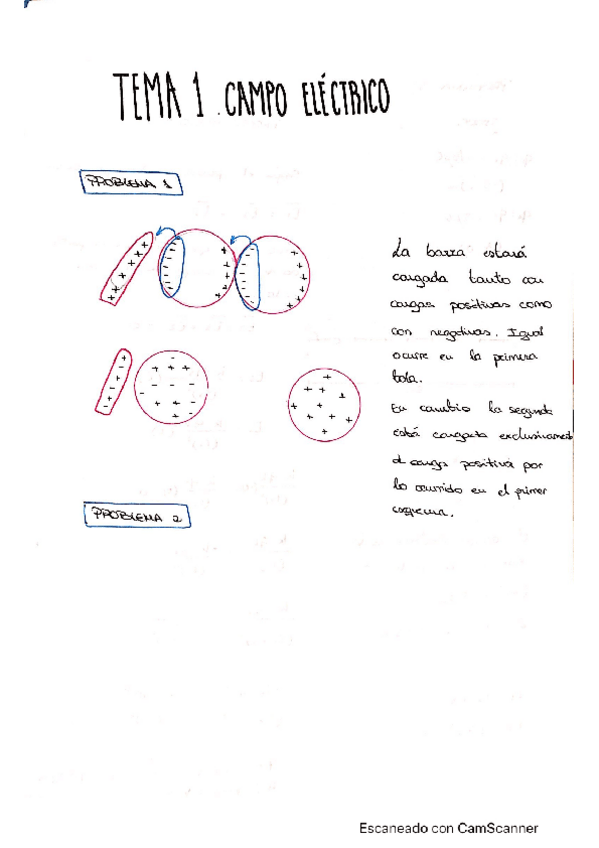 TEMA 1. CAMPO ELÉCTRICO
PROBLEMA 1
La barra estará
cargada tanto con
cargas positivas como
con negativas. Igual
ocurre en la primera
bola.
En cambio la segunda
está cargada exclusivament
d carga positiva por
lo ocurrido en el primer
esquema.
PROBLEMA 2
Escaneado con CamScanner